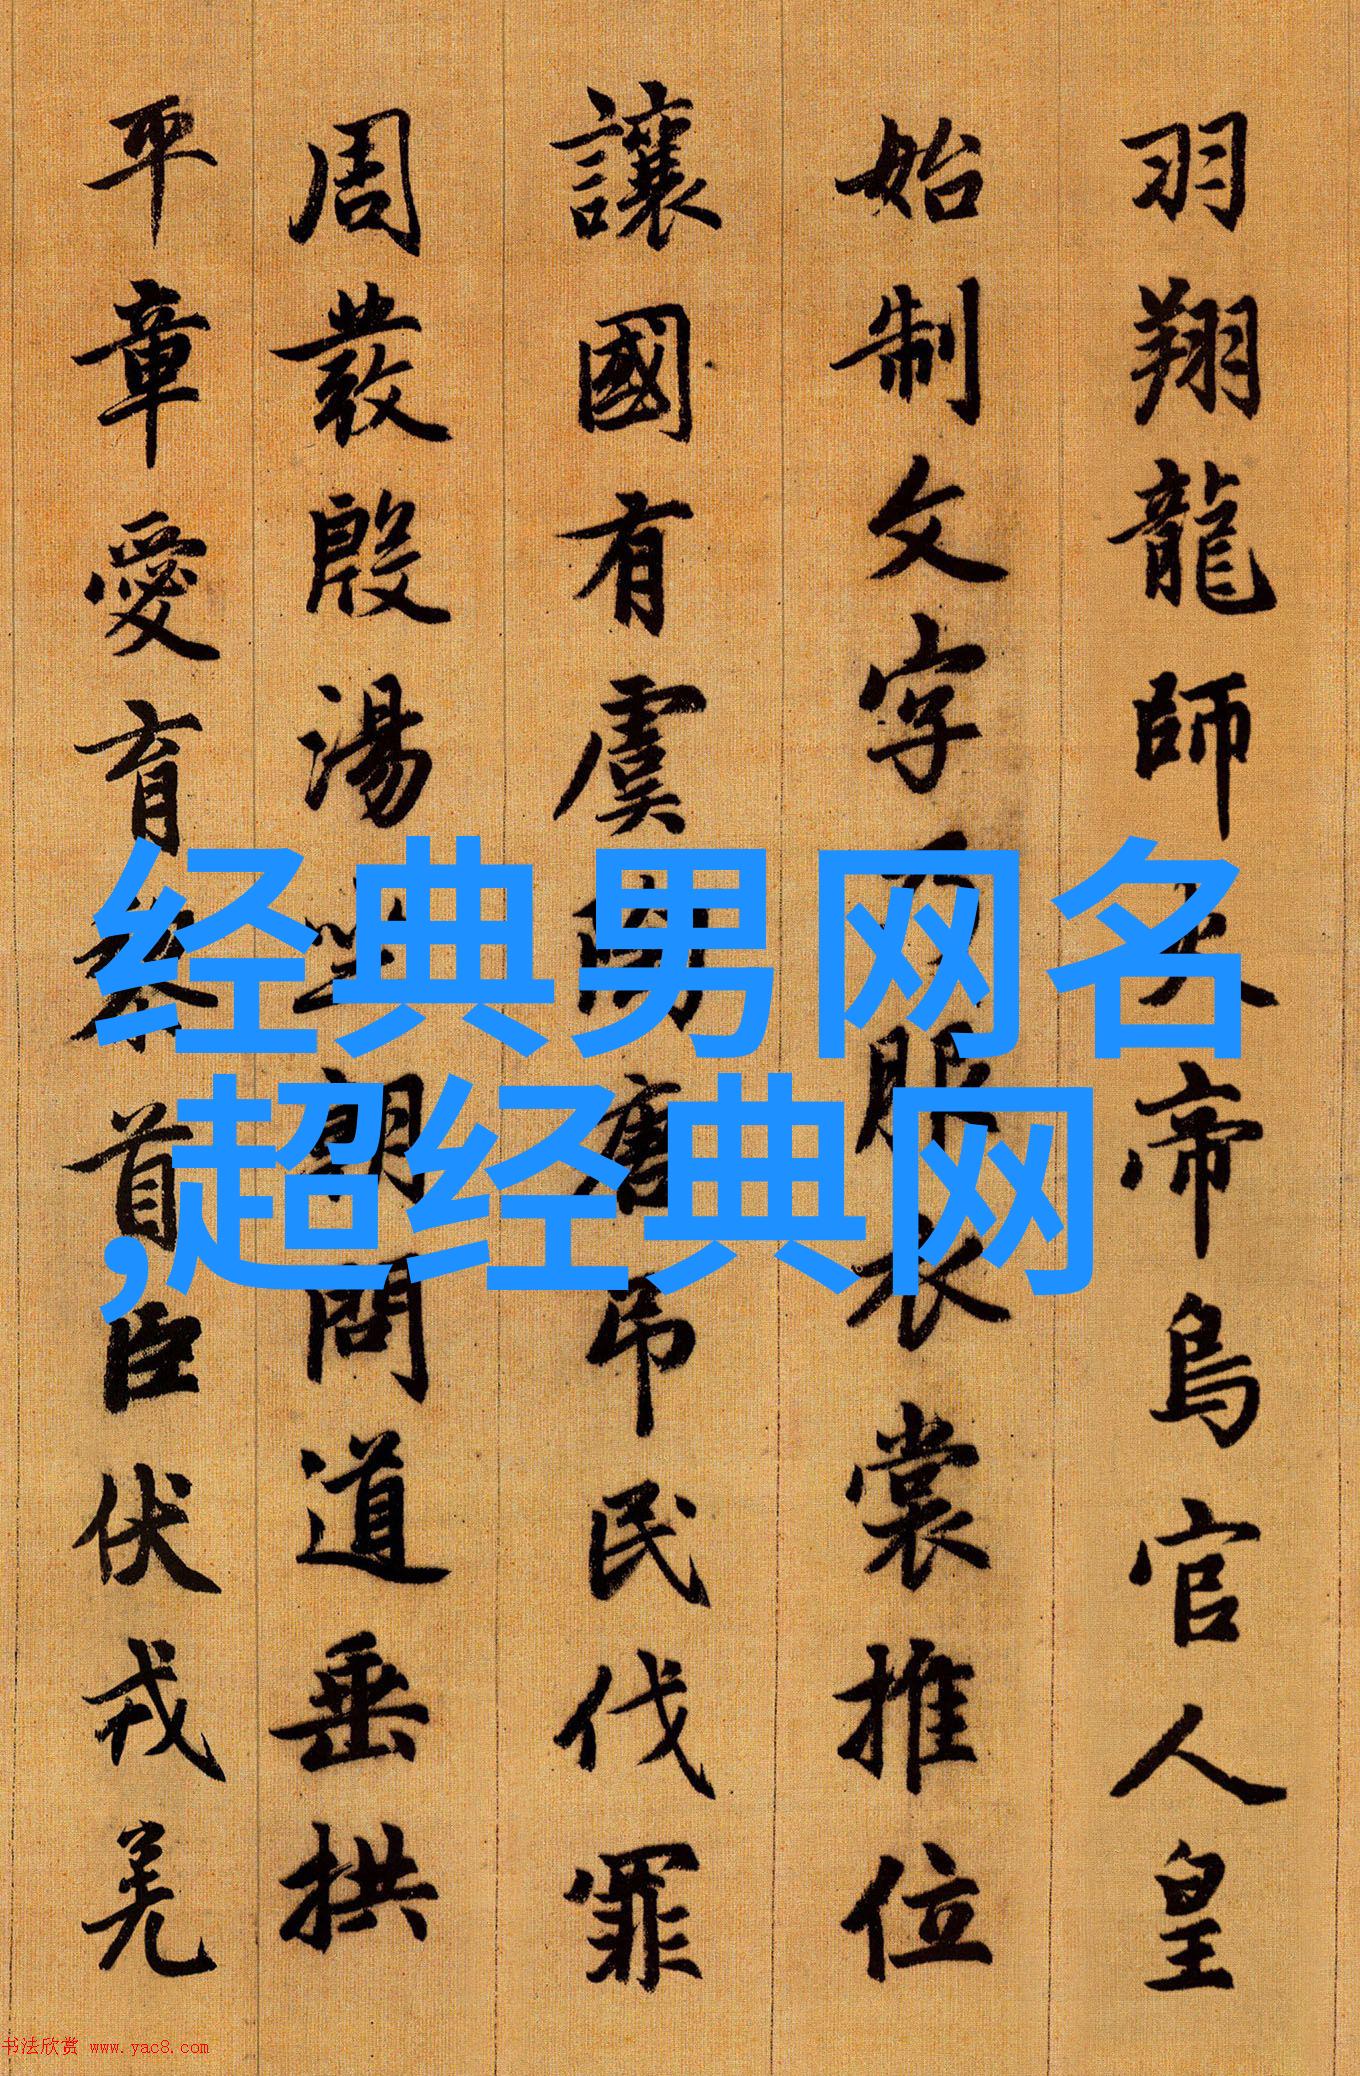 羽翔龍師火帝鳥官人皇
始制文字乃服衣裳推位
讓國有虞陶唐吊民伐罪
周發殷湯坐朝問道垂拱
平章愛育黎首臣伏戎羌
经典男网名
,超经典网
书法欣赏 www.yac8.com